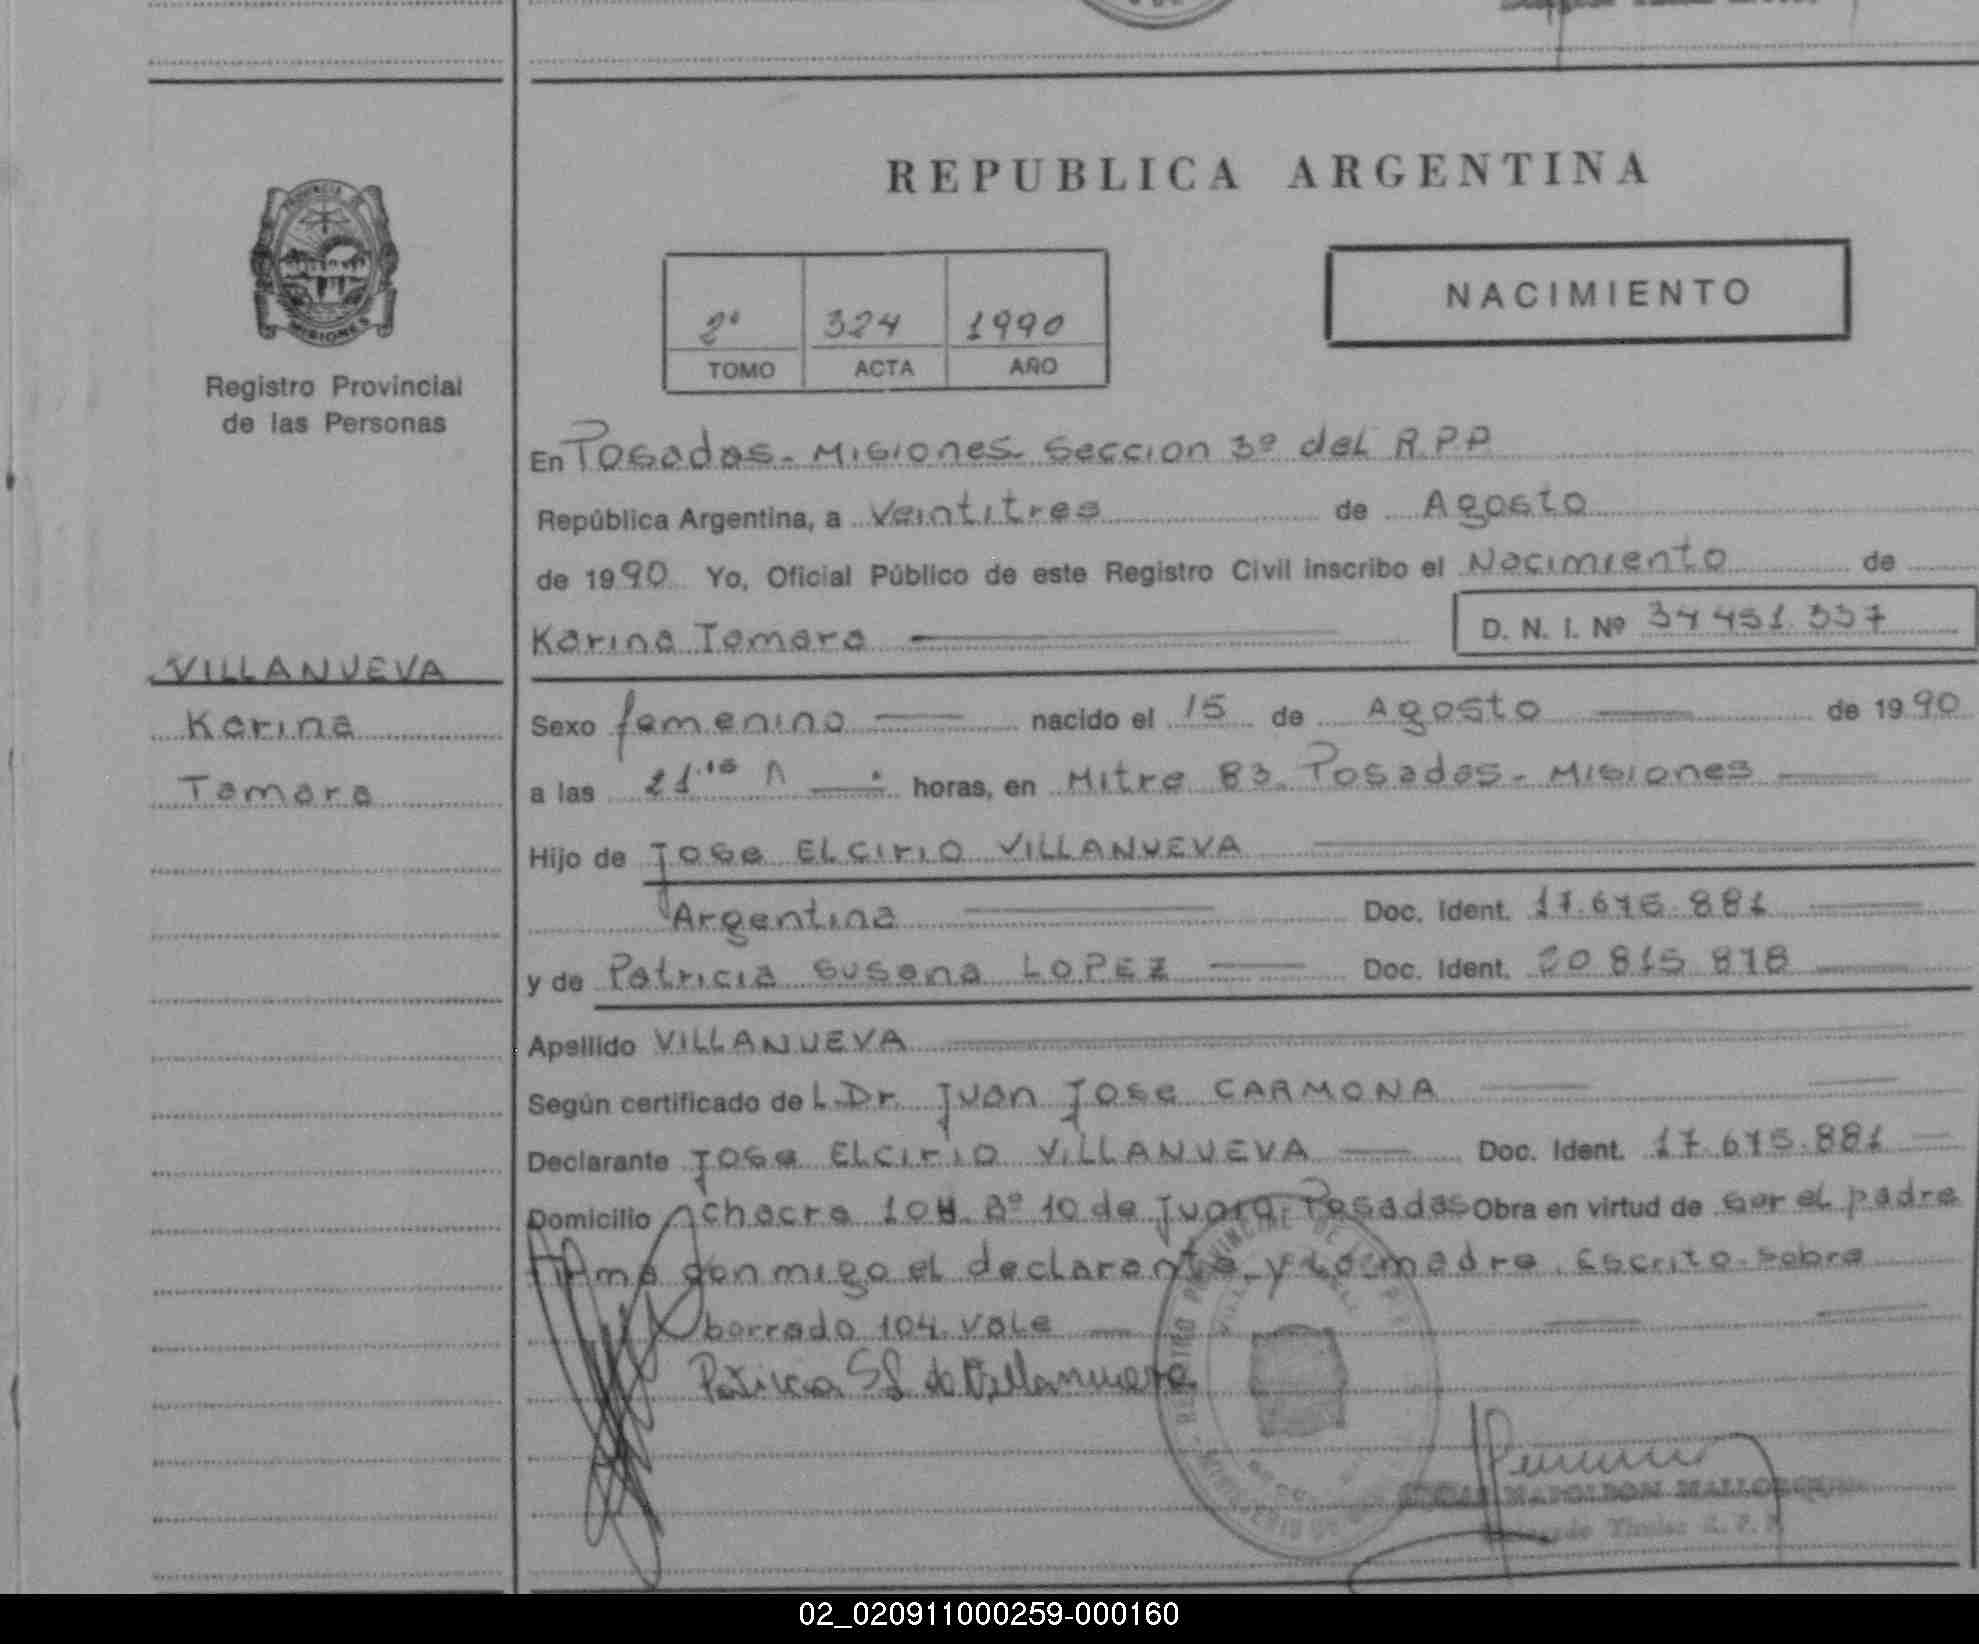 REPUBLICA ARGENTINA
NACIMIENTO
2º 324 1990
TOMO ACTA AÑO
MISIONES
Registro Provincial
de las Personas
En Posadas - Misiones - Seccion 3º del R.P.P
República Argentina, a Veintitres de Agosto
de 1990 Yo, Oficial Público de este Registro Civil inscribo el Nacimiento de
Karina Tamara D. N. I. Nº 34 451.337
VILLANUEVA
Karina
Tamara
Sexo femenino nacido el 15 de Agosto de 1990
a las horas, en Mitre 83. Posadas - Misiones
Hijo de Jose ELCIRIO VILLANUEVA
Argentina Doc. Ident. 17.675.881
y de Patricia Susana LOPEZ Doc. Ident. 20 815 878
Apellido VILLANUEVA
Según certificado de L Dr. Juan Jose CARMONA
Declarante Jose ELCIRIO VILLANUEVA Doc. Ident. 17.675.881
Domicilio Chacra 104 Posadas Obra en virtud de ser el padre
Firma conmigo el declarante y La madre. Escrito sobre
borrado 104. Vale
Patricia de Villanueva
NAPOLEON
Titular R. P. P.
02_020911000259-000160